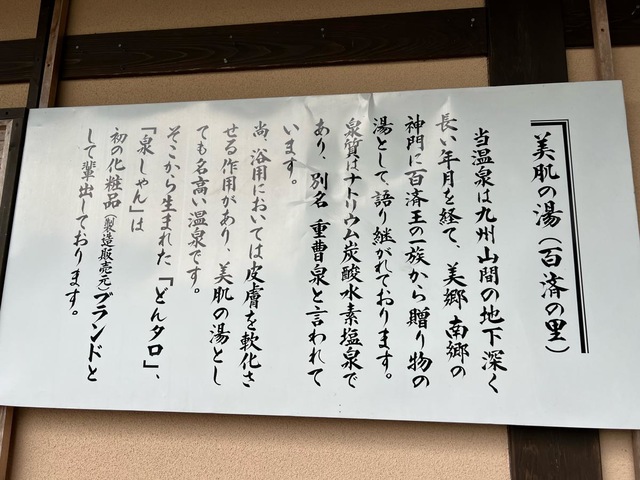 美肌の湯(百済の里)
当温泉は九州山間の地下深く
長い年月を経て、美郷 南郷の
神門に百済王の一族から贈り物の
湯として、語り継がれております。
泉質はナトリウム炭酸水素塩泉で
あり、別名 重曹泉と言われて
います。
尚、浴用においては皮膚を軟化さ
せる作用があり、美肌の湯とし
ても名高い温泉です。
そこから生まれた「どんタロ」、
「泉しゃん」は
初の化粧品(製造販売元)ブランドと
して輩出しております。